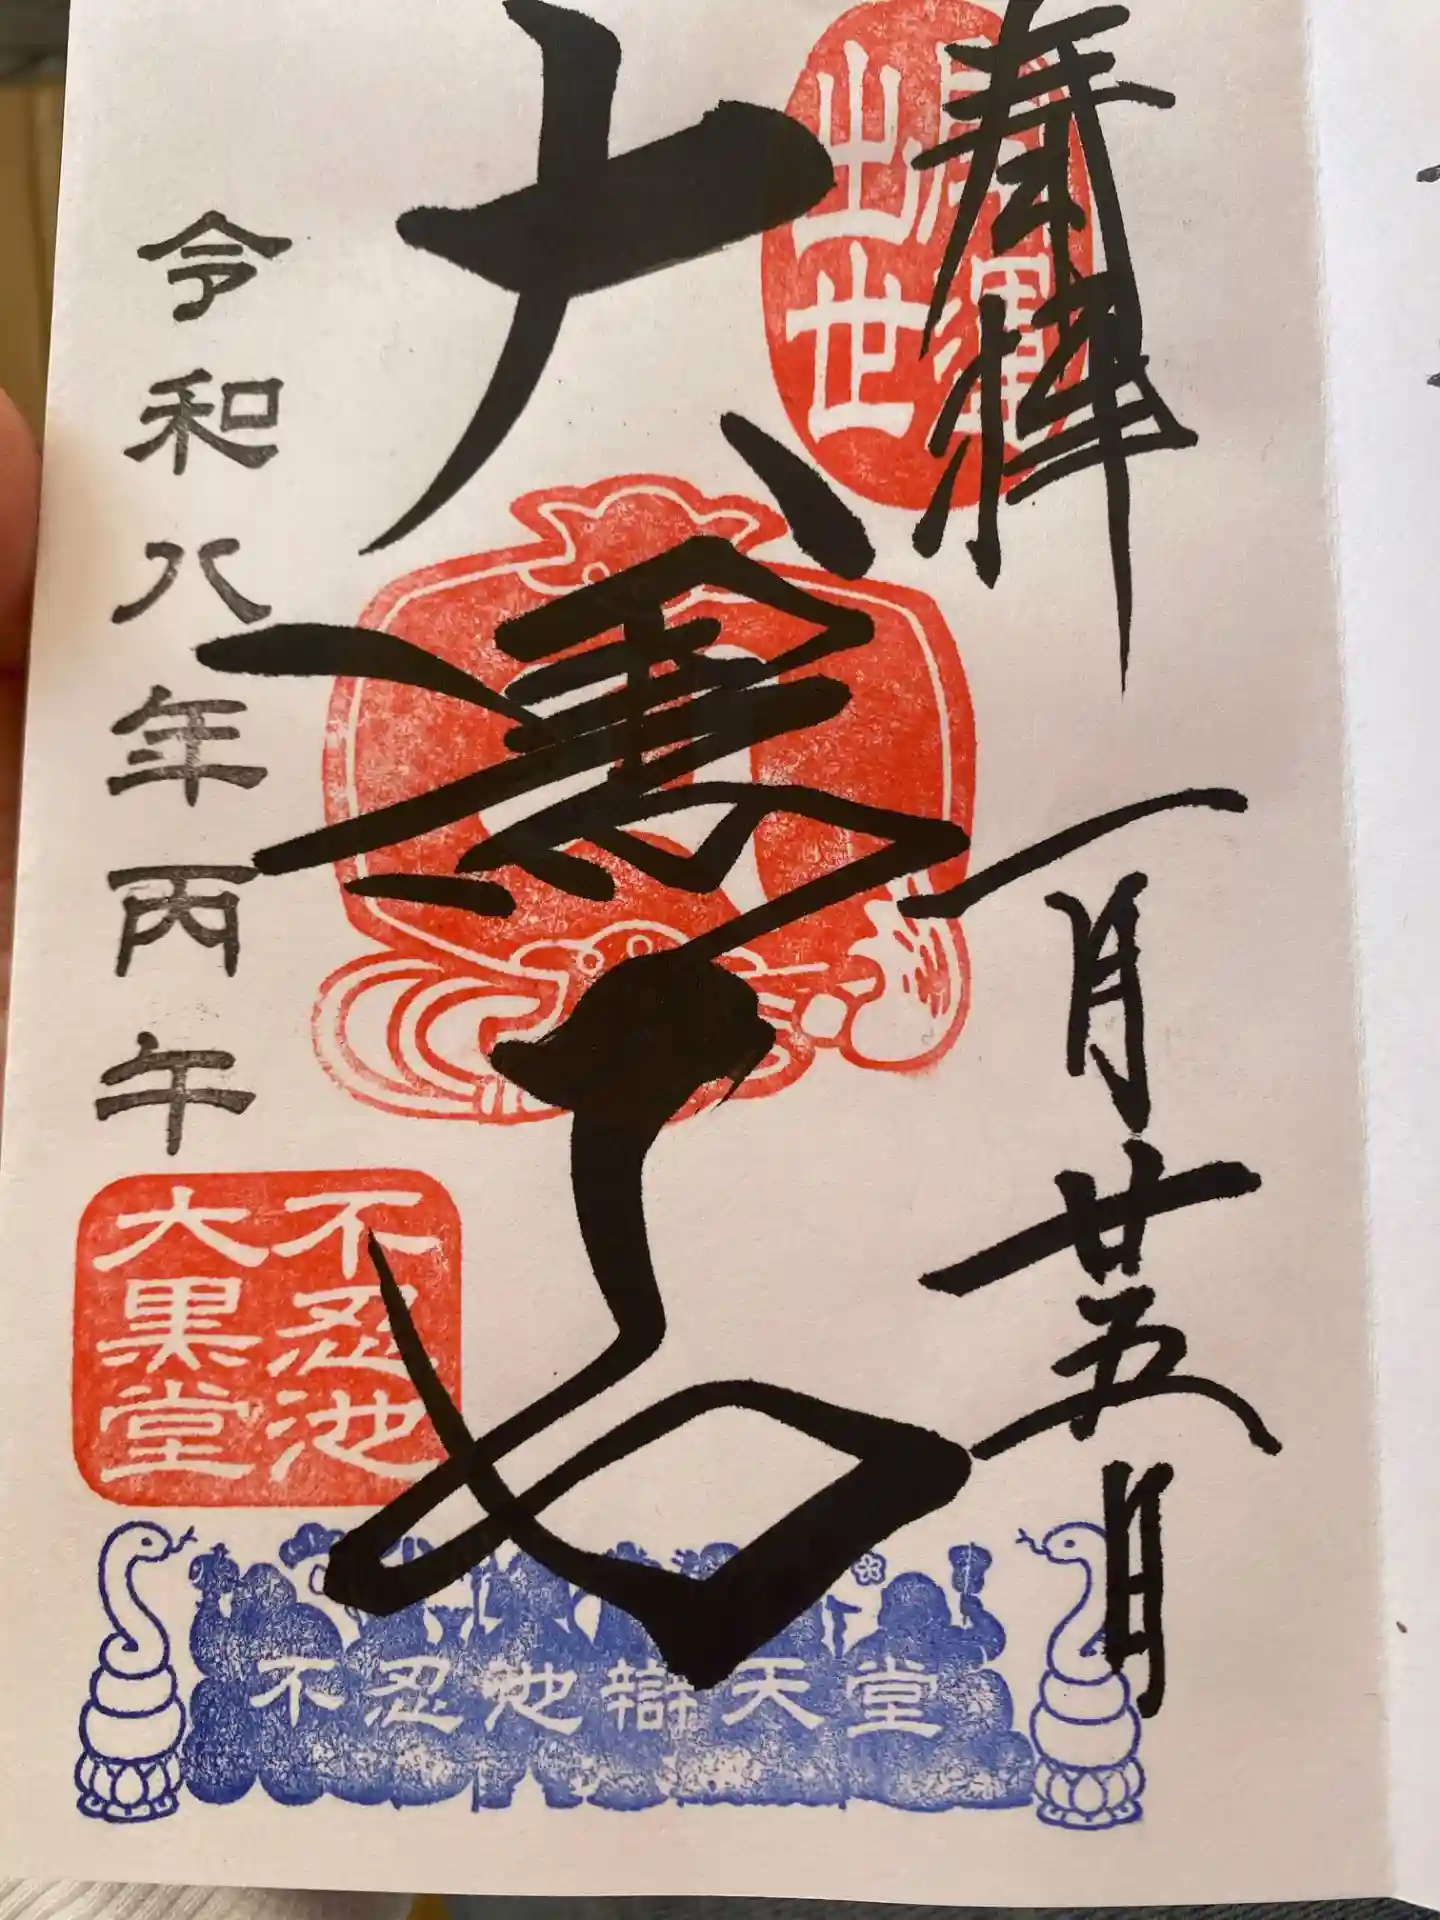 奉拝
一月廿五日
開運
出世
大黒天
令和八年丙午
不忍池
大黒堂
不忍池辯天堂